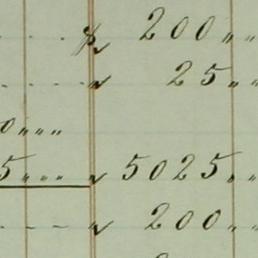 $ 200 " "
" 25 " "
0 " " "
5 " " " " 5025 " "
" 200 " "